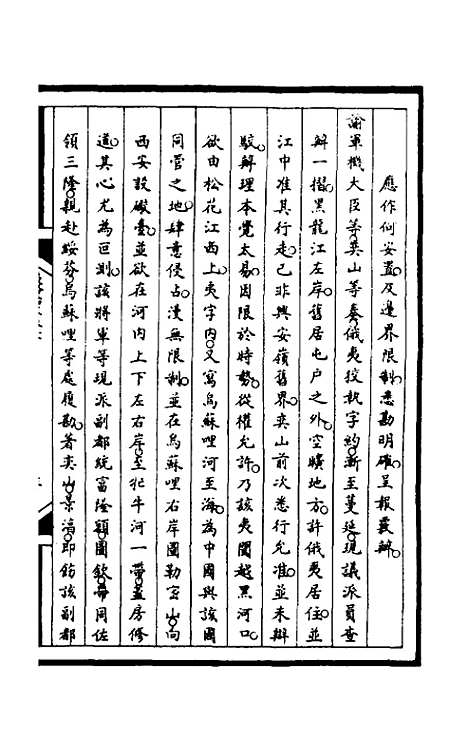 應作何安置及邊界限制悉勘明確呈報覈辦
諭軍機大臣等奕山等奏俄夷狡執字約漸至蔓延現議派員查
辦一摺黑龍江左岸舊居屯戶之外空曠地方許俄夷居住並
江中准其行走已非興安嶺舊界奕山前次悉行允准並未辯
駮辦理本覺太易因限於時勢從權允許乃該夷闖越黑河口
欲由松花江西上夷字內又寫烏蘇哩河至海為中國與該國
同管之地肆意侵占漫無限制並在烏蘇哩右岸圖勒密山向
西安設礮臺並欲在河內上下左右岸至牤牛河一帶蓋房修
道其心尤為叵測該將軍等現派副都統富隆額圖欽帶同佐
領三隆親赴綏芬烏蘇哩等處履勘著奕山景淳即飭該副都